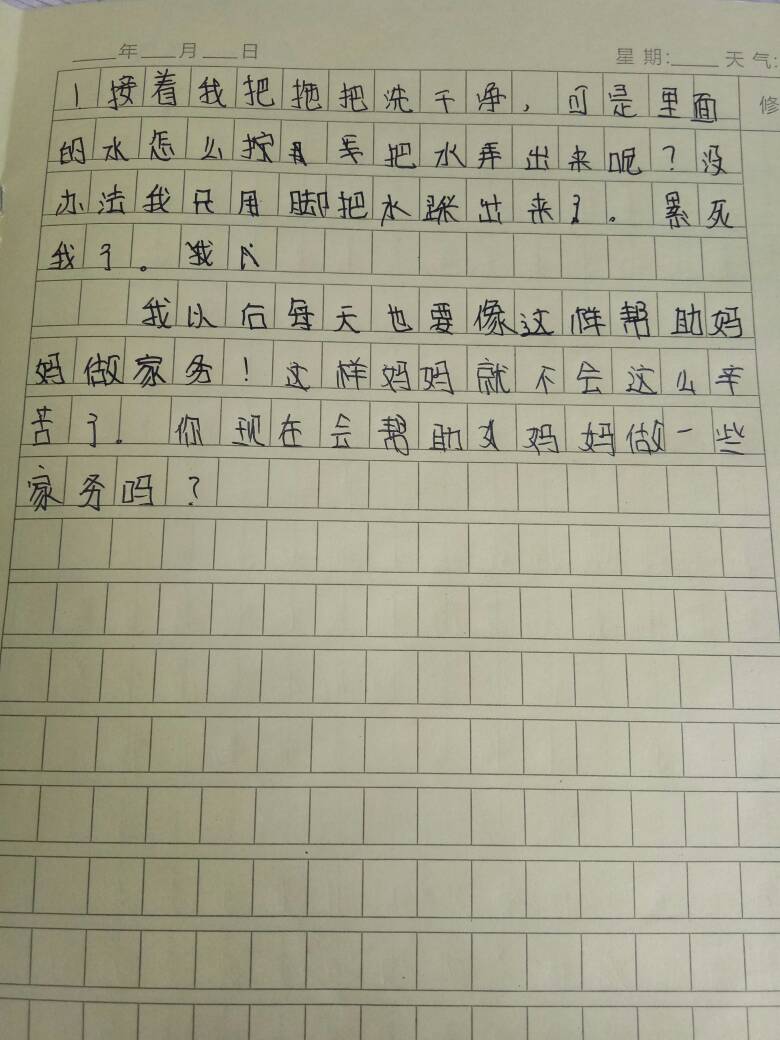 ____年____月____日 星期:____天气:
接着我把拖把洗干净，可是里面 修
的水怎么拧 手把水弄出来呢？没
办法我只用脚把水踩出来了。累死
我了。我
我以后每天也要像这样帮助妈
妈做家务！这样妈妈就不会这么辛
苦了。你现在会帮助 妈妈做一些
家务吗？